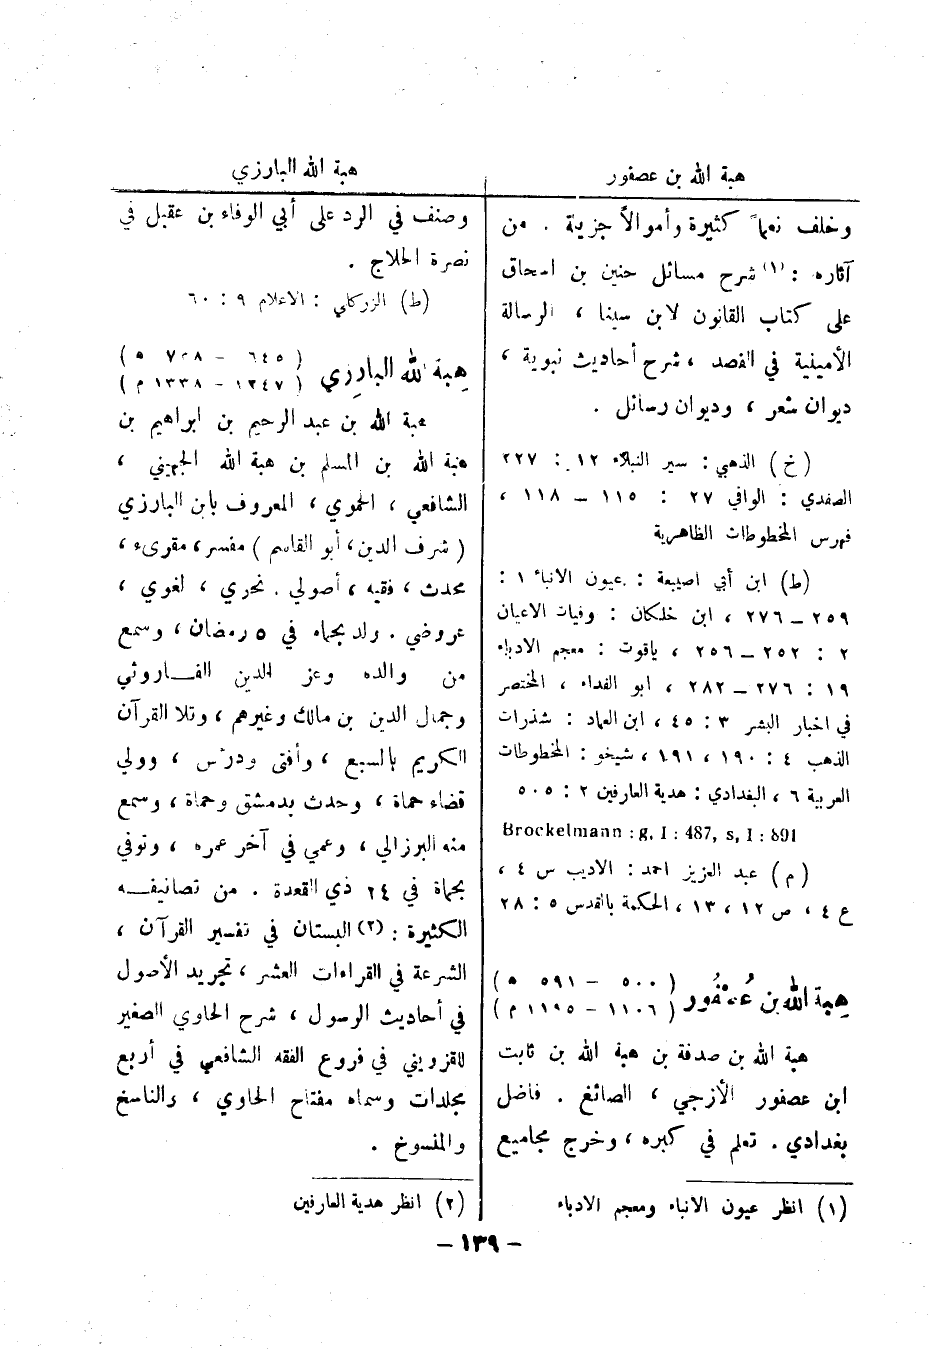 هبة الله بن عصفور
هبة الله البارزي
وخلف نعماً كثيرة وأموالاً جزية . من
آثاره : (١) شرح مسائل حنين بن اسحاق
على كتاب القانون لابن سينا ، الرسالة
الأمينية في الفصد ، شرح أحاديث نبوية ،
ديوان شعر ، وديوان رسائل .
(خ) الذهبي : سير النبلاء ١٢ : ٢٢٧
الصفدي : الوافي ٢٧ : ١١٥ – ١١٨ ،
فهرس المخطوطات الظاهرية
(ط) ابن أبي اصيبعة : عيون الانباء ١ :
٢٥٩ – ٢٧٦ ، ابن خلكان : وفيات الاعيان
٢ : ٢٥٢ – ٢٥٦ ، ياقوت : معجم الادباء
١٩ : ٢٧٦ – ٢٨٢ ، ابو الفداء ، المختصر
في اخبار البشر ٣ : ٤٥ ، ابن العماد : شذرات
الذهب ٤ : ١٩٠ ، ١٩١ ، شيخو : المخطوطات
العربية ٦ ، البغدادي : هدية العارفين ٢ : ٥٠٥
Brockelmann : g, I : 487, s, I : 891
(م) عبد العزيز احمد : الاديب س ٤ ،
ع ٤ ، ص ١٢ ، ١٣ ، الحكمة بالقدس ٥ : ٢٨
هِبة الله بن عُصْفُور (٥٠٠ – ٥٩١ هـ)
(١١٠٦ – ١١٩٥ م)
هبة الله بن صدقة بن هبة الله بن ثابت
ابن عصفور الأزجي ، الصائغ . فاضل
بغدادي . تعلم في كبره ، وخرج مجاميع
(١) انظر عيون الانباء ومعجم الادباء
وصنف في الرد على أبي الوفاء بن عقيل في
نصرة الحلاج .
(ط) الزركلي : الاعلام ٩ : ٦٠
هِبة الله البارِزي (٦٤٥ – ٧٣٨ هـ)
(١٢٤٧ – ١٣٣٨ م)
هبة الله بن عبد الرحيم بن ابراهيم بن
هبة الله بن المسلم بن هبة الله الجهيني ،
الشافعي ، الحموي ، المعروف بابن البارزي
(شرف الدين، أبو القاسم) مفسر، مقرىء،
محدث ، فقيه ، أصولي . نحوي ، لغوي ،
عروضي . ولد بحماه في ٥ رمضان ، وسمع
من والده وعز الدين الفــاروثي
وجمال الدين بن مالك وغيرهم ، وتلا القرآن
الكريم بالسبع ، وأفتى ودرّس ، وولي
قضاء حماة ، وحدث بدمشق وحماة ، وسمع
منه البرزالي ، وعمي في آخر عمره ، وتوفي
بحماة في ٢٤ ذي القعدة . من تصانيفــه
الكثيرة : (٢) البستان في تفسير القرآن ،
الشرعة في القراءات العشر ، تجريد الأصول
في أحاديث الرسول ، شرح الحاوي الصغير
للقزويني في فروع الفقه الشافعي في أربع
مجلدات وسماه مفتاح الحاوي ، والناسخ
والمنسوخ .
(٢) انظر هدية العارفين
– ١٣٩ –